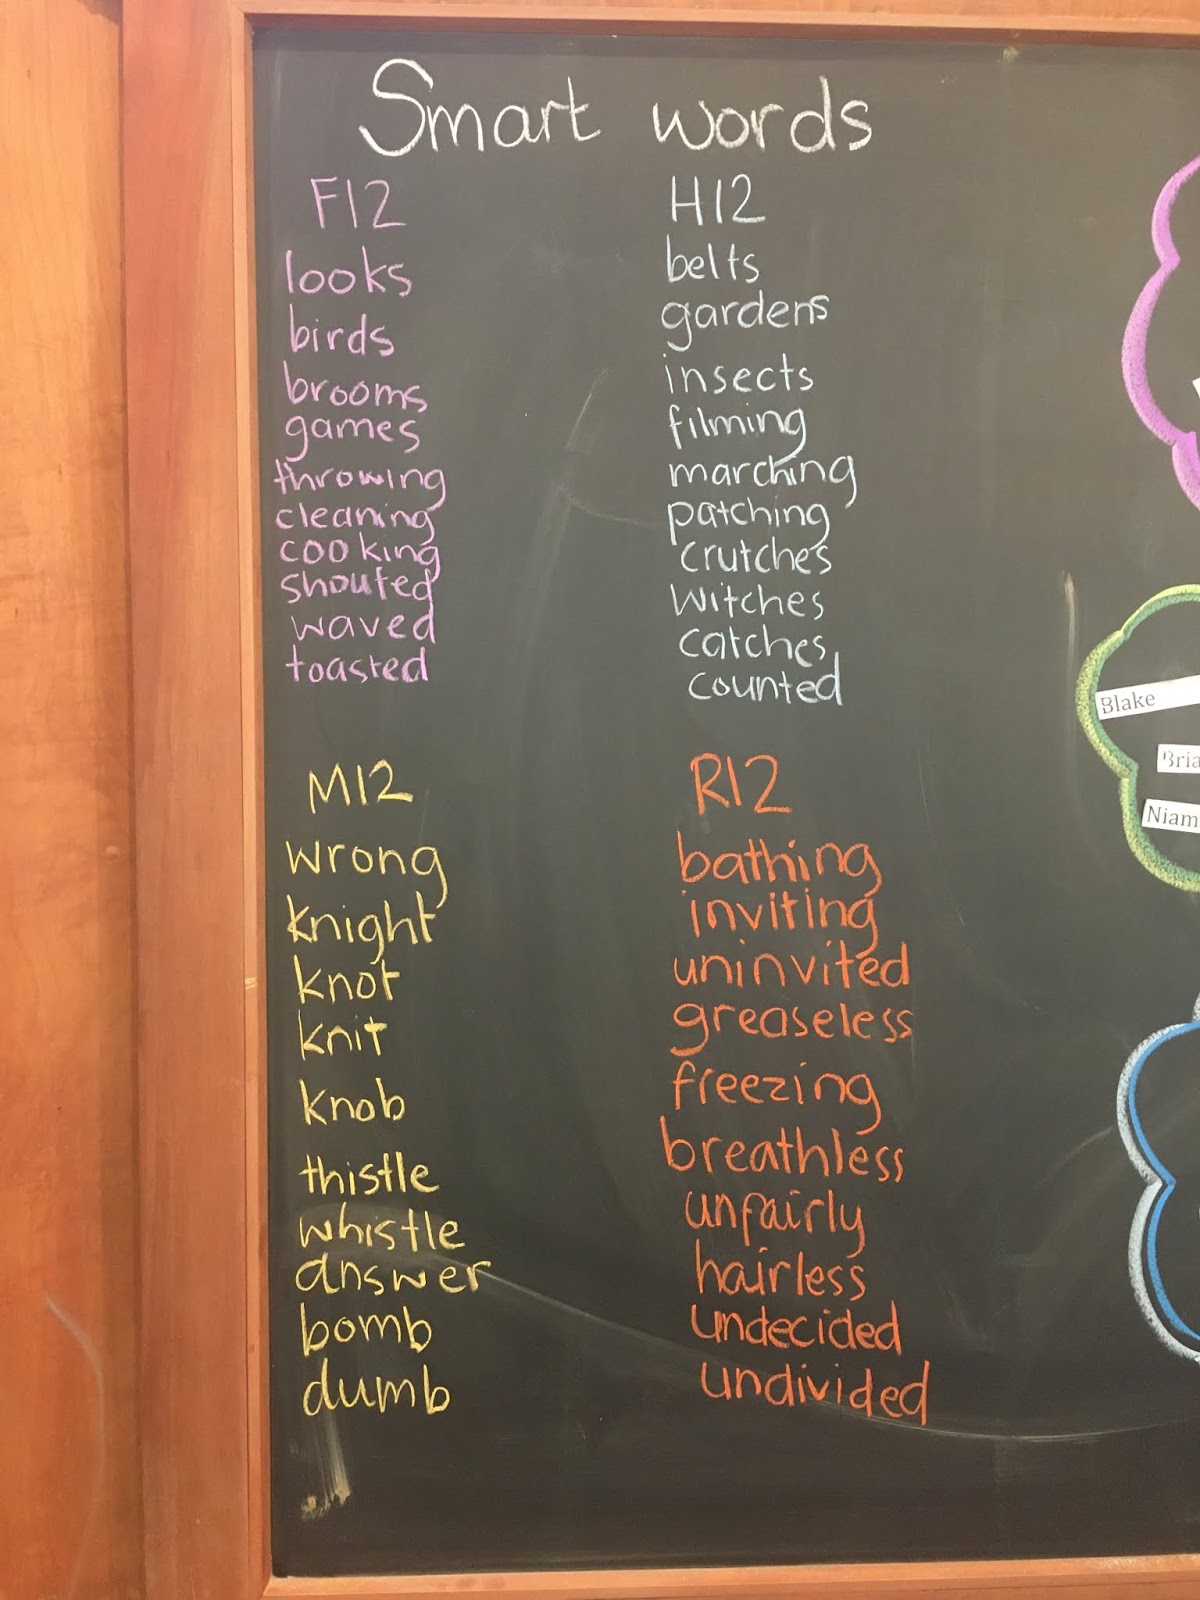 Smart words
F12
looks
birds
brooms
games
throwing
cleaning
cooking
shouted
waved
toasted
H12
belts
gardens
insects
filming
marching
patching
crutches
witches
catches
counted
M12
wrong
knight
knot
knit
knob
thistle
whistle
answer
bomb
dumb
R12
bathing
inviting
uninvited
greaseless
freezing
breathless
unfairly
hairless
undecided
undivided
Blake
Bria
Niam